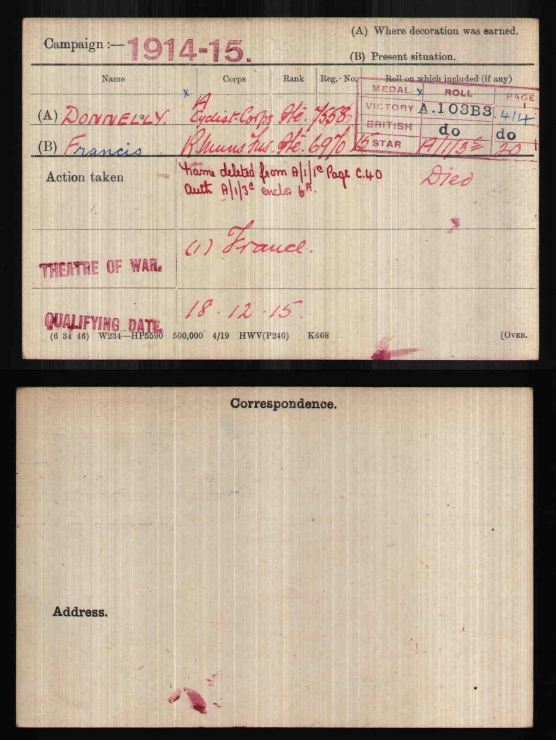 (A) Where decoration was earned.
Campaign :— 1914-15.
(B) Present situation.
Name Corps Rank Reg. No. Roll on which included (if any)
MEDAL x ROLL PAGE
x A
(A) DONNELLY. Cyclist Corps Pte. 7558.
VICTORY A.103B3 414
BRITISH do do
(B) Francis R. Muns Fus. Pte. 6970
15 STAR A/1/3c 20
Action taken Name deleted from A/1/1c Page C.40 Died
auth A/1/3c enclo 6A.
THEATRE OF WAR. (1) France.
QUALIFYING DATE 18.12.15.
(6 34 46) W234—HP5590 500,000 4/19 HWV(P240) K608 [OVER.
Correspondence.
Address.